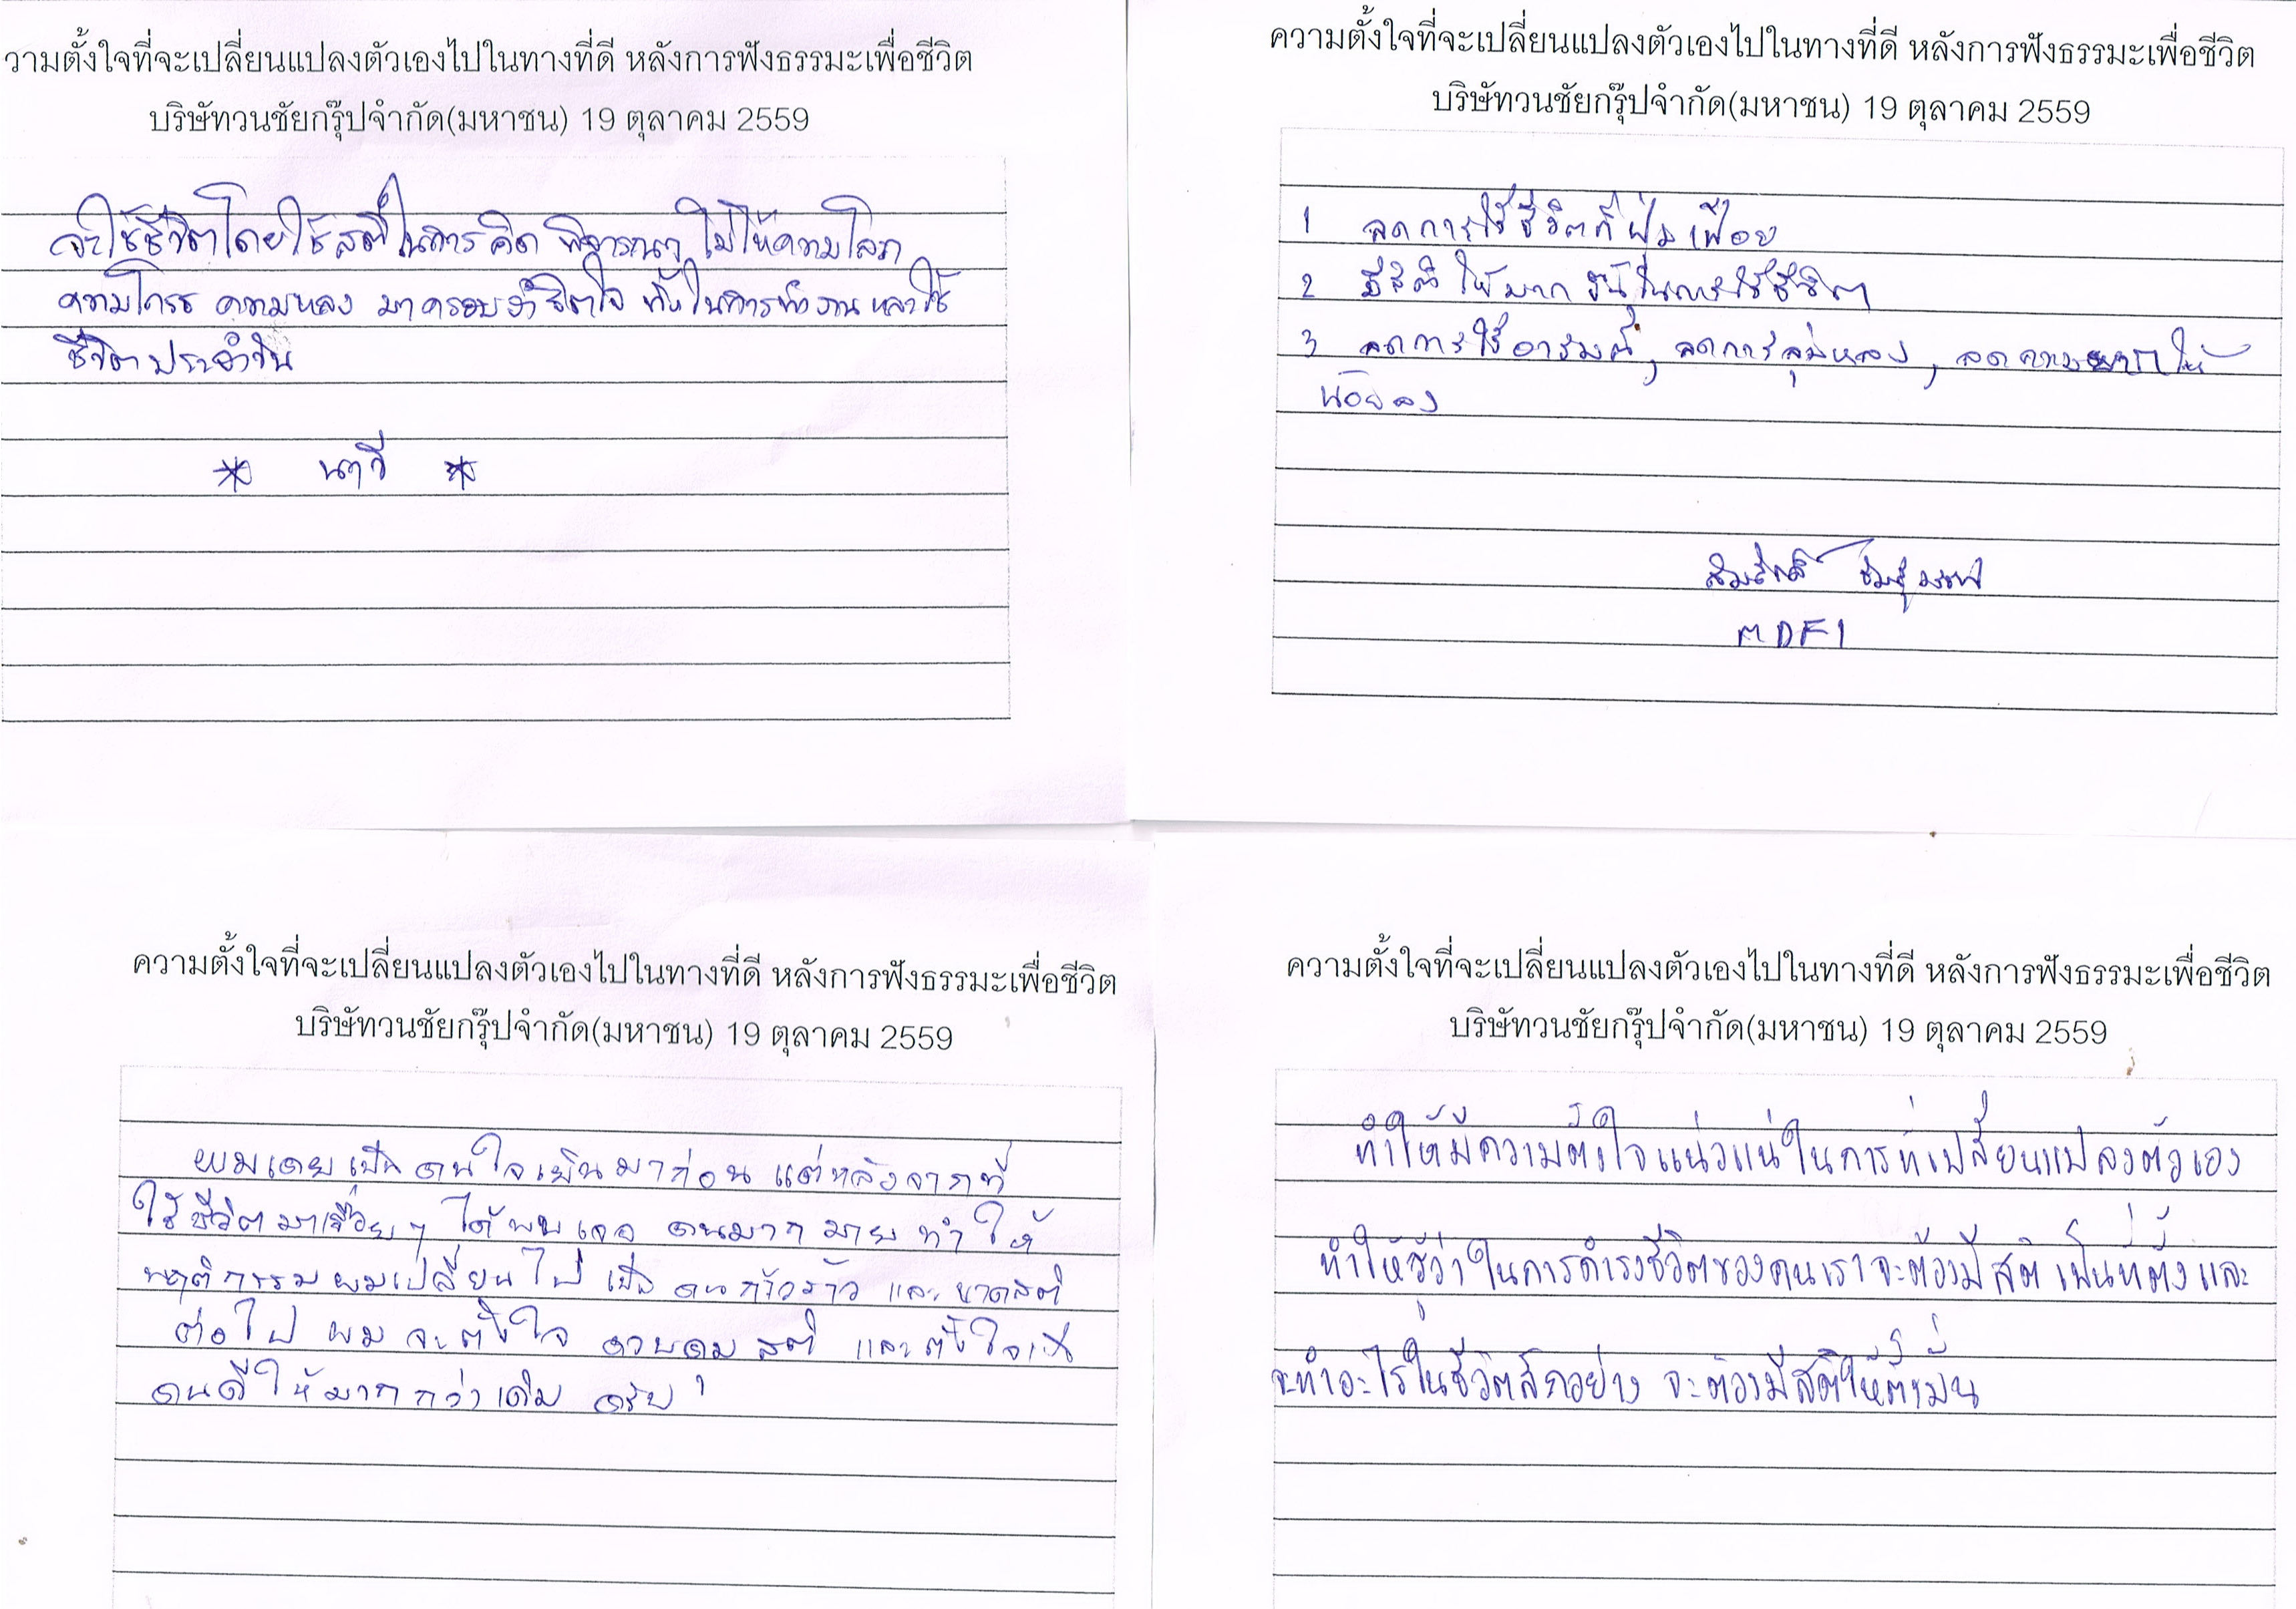 วามตั้งใจที่จะเปลี่ยนแปลงตัวเองไปในทางที่ดี หลังการฟังธรรมะเพื่อชีวิต
บริษัทวนชัยกรุ๊ปจำกัด(มหาชน) 19 ตุลาคม 2559
จะใช้ชีวิตโดยใช้สติในการคิด พิจารณา ไม่ให้ความโลภ
ความโกรธ ความหลง มาครอบงำจิตใจ ทั้งในการทำงาน และใช้
ชีวิตประจำวัน
* นาวี *
ความตั้งใจที่จะเปลี่ยนแปลงตัวเองไปในทางที่ดี หลังการฟังธรรมะเพื่อชีวิต
บริษัทวนชัยกรุ๊ปจำกัด(มหาชน) 19 ตุลาคม 2559
1 ลดการใช้ชีวิตที่ฟุ่มเฟือย
2 มีสติ ให้มากขึ้นในการใช้ชีวิต
3 ลดการใช้อารมณ์, ลดการลุ่มหลง, ลดความ ให้
น้อยลง
สมศักดิ์
MDF1
ความตั้งใจที่จะเปลี่ยนแปลงตัวเองไปในทางที่ดี หลังการฟังธรรมะเพื่อชีวิต
บริษัทวนชัยกรุ๊ปจำกัด(มหาชน) 19 ตุลาคม 2559
ผมเคยเป็นคนใจเย็นมาก่อน แต่หลังจากที่
ใช้ชีวิตมาเรื่อยๆ ได้พบเจอ คนมากมาย ทำให้
พฤติกรรมผมเปลี่ยนไป เป็นคนก้าวร้าว และขาดสติ
ต่อไป ผมจะตั้งใจ ควบคุม สติ และตั้งใจเป็น
คนดีให้มากกว่าเดิม ครับ
ความตั้งใจที่จะเปลี่ยนแปลงตัวเองไปในทางที่ดี หลังการฟังธรรมะเพื่อชีวิต
บริษัทวนชัยกรุ๊ปจำกัด(มหาชน) 19 ตุลาคม 2559
ทำให้มีความตั้งใจแน่วแน่ในการที่เปลี่ยนแปลงตัวเอง
ทำให้รู้ว่าในการดำรงชีวิตของคนเราจะต้องมีสติเป็นที่ตั้งและ
จะทำอะไรในชีวิตสักอย่าง จะต้องมีสติให้ตั้งมั่น